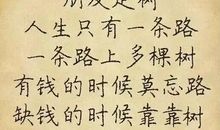 朋友是树
人生只有一条路
一条路上多棵树
有钱的时候莫忘路
缺钱的时候靠靠树